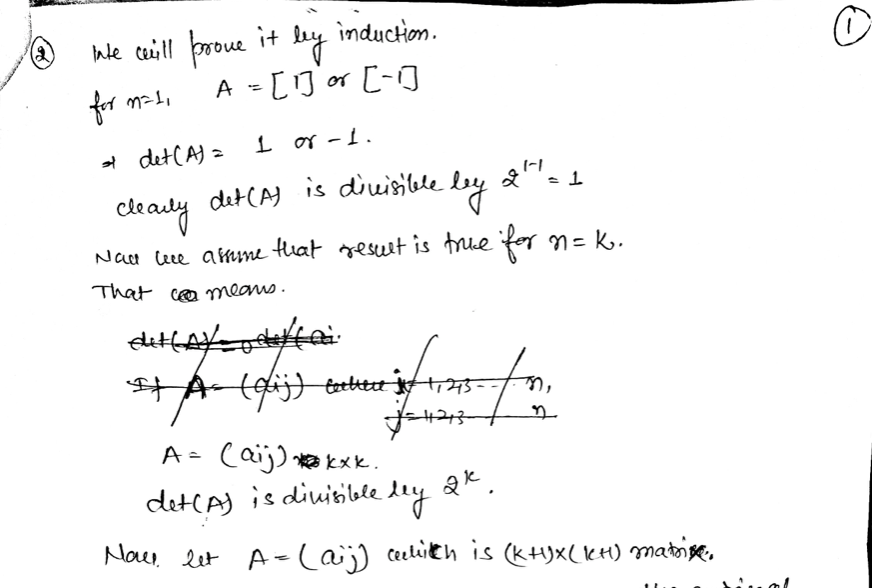 ①
② We will prove it by induction.
for n=1, A = [1] or [-1]
⇒ det(A) = 1 or -1.
clearly det(A) is divisible by 2^{1-1} = 1
Now we assume that result is true for n = k.
That means.
A = (aij) k×k.
det(A) is divisible by 2^k.
Now let A = (aij) which is (k+1)×(k+1) matrix.